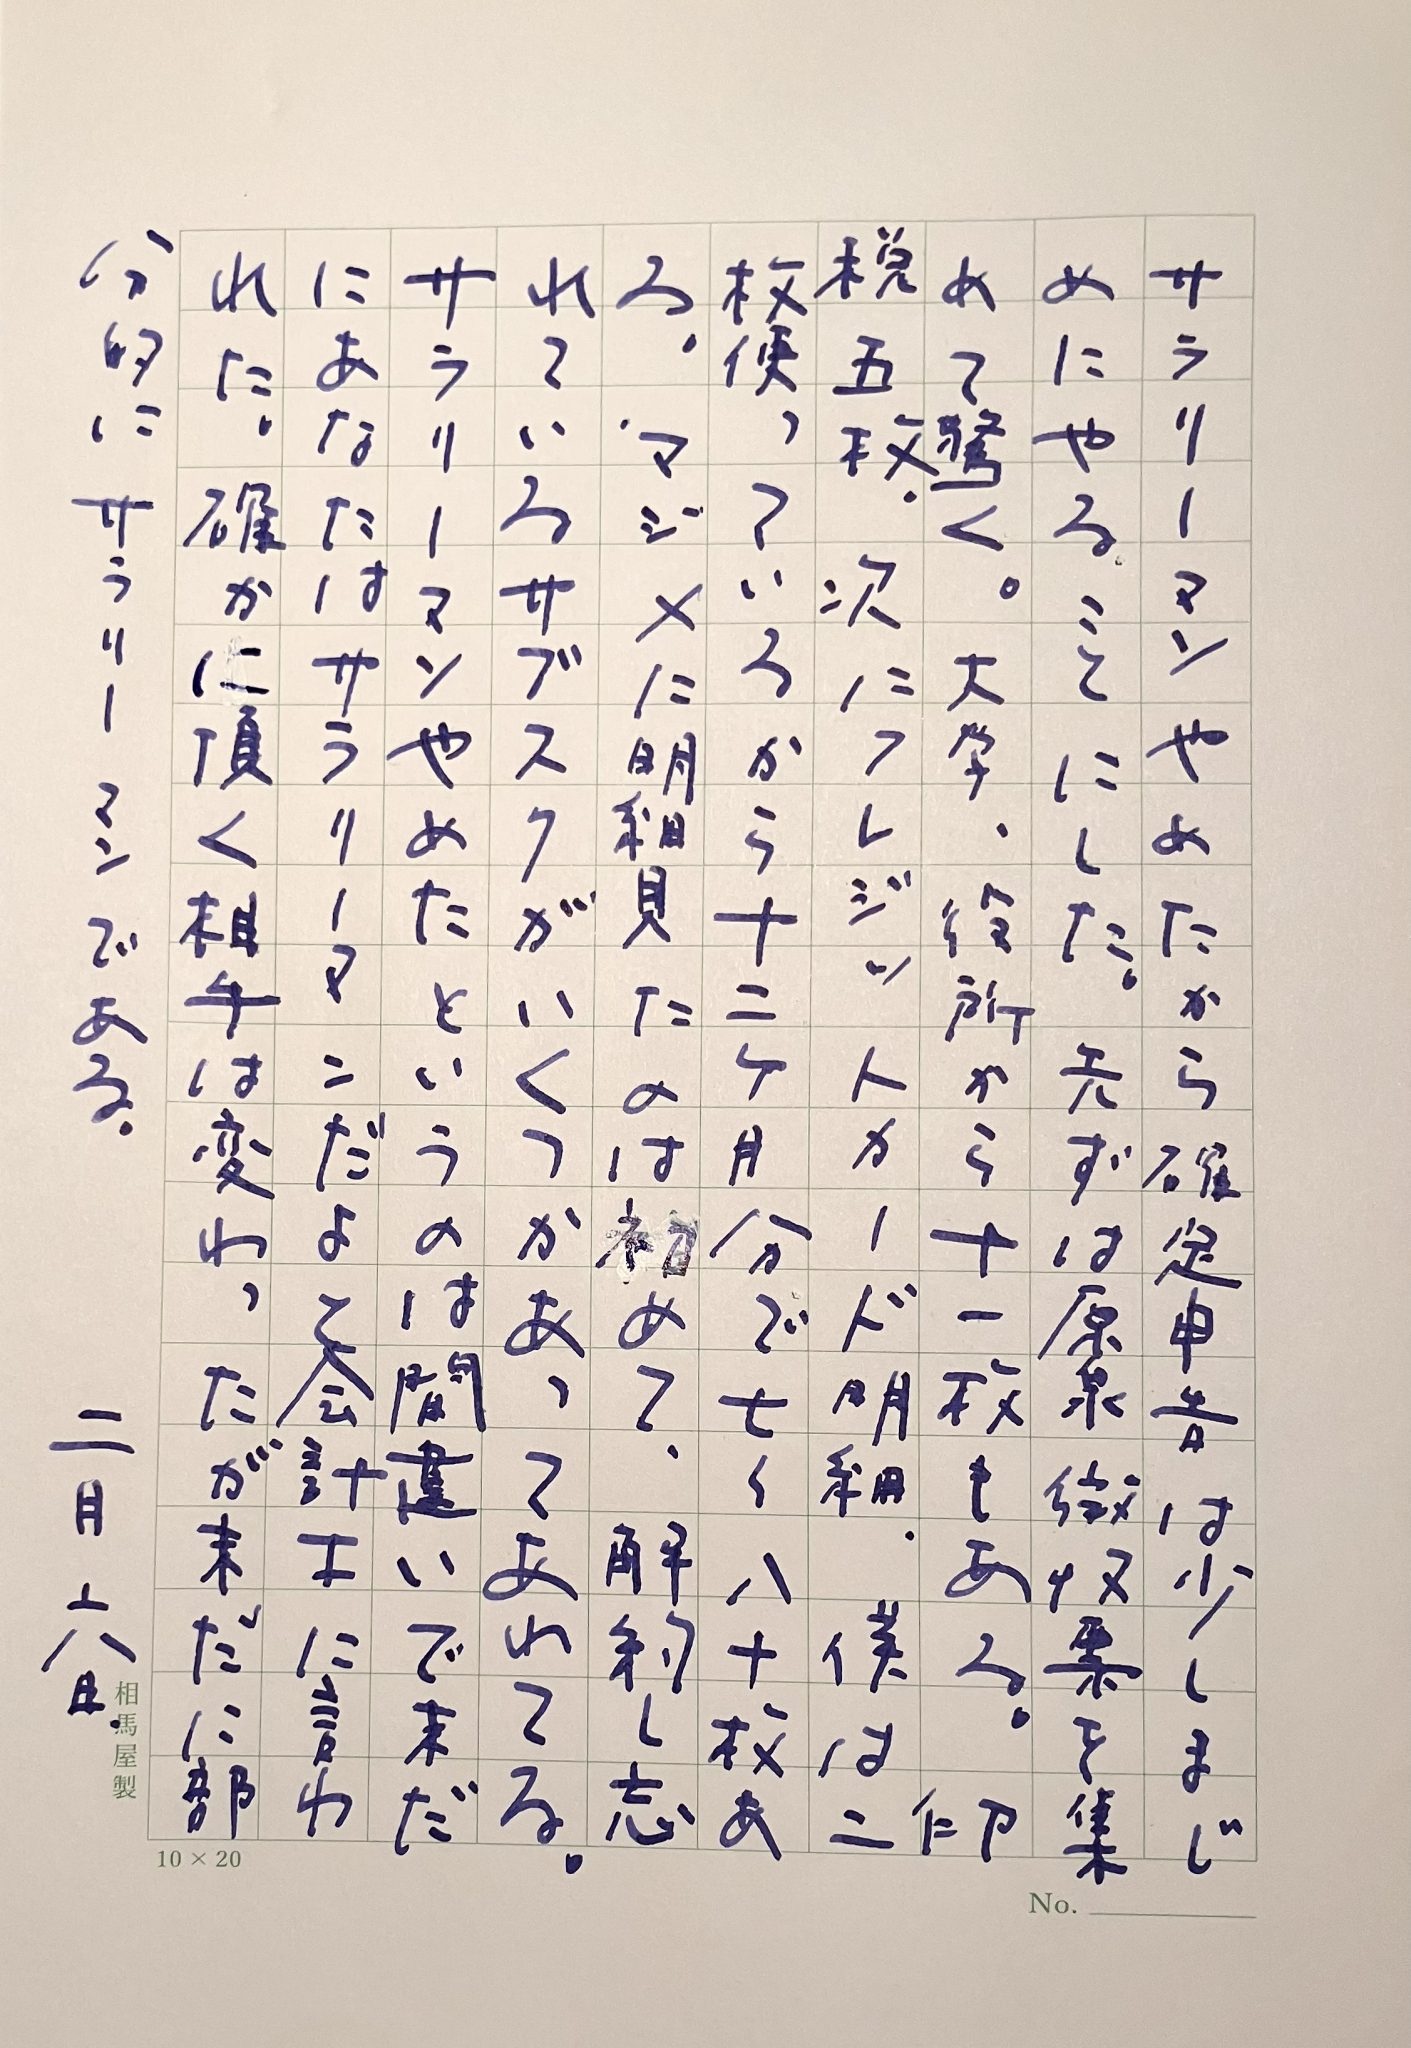 サラリーマンやめたから確定申告は少しまじ
めにやる。ことにした。先ずは原泉徴収票を集
めて驚く。大学、役所から十一枚もある。印
税五枚。次にクレジットカード明細。僕は二
枚使っているから十二ケ月分で七く八十枚あ
る。マジメに明細見たのは初めて、解約し忘
れているサブスクがいくつかあってあわてる。
サラリーマンやめたというのは間違いで未だ
にあなたはサラリーマンだよと会計士に言わ
れた。確かに頂く相手は変わったが未だに部
分的にサラリーマンである。
二月六日
相馬屋製
10×20
No.